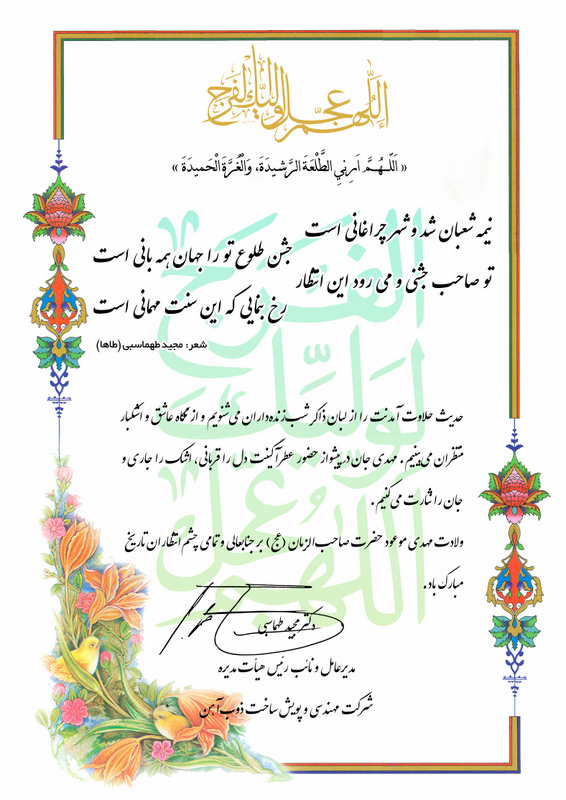 اللّهم عجّل لوليّك الفرج
« اَللّـهُـمَّ اَرِنیِ الطَّلْعَةَ الرَّشیدَةَ، وَالْغُرَّةَ الْحَمیدَةَ »
نیمه شعبان شد و شهر چراغانی است
جشن طلوع تو را جهان همه بانی است
تو صاحب جشنی و می رود این انتظار
رخ بنمایی که این سنت مهمانی است
شعر: مجید طهماسبی (طاها)
حدیث حلاوت آمدنت را از لبان ذاکر شب‌زنده‌داران می‌شنویم و از نگاه عاشق و اشکبار
منتظران می‌بینیم . مهدی جان در پیشواز حضور عطرآگینت دل را قربانی، اشک را جاری و
جان را نثارت می‌کنیم .
ولادت مهدی موعود حضرت صاحب‌الزمان (عج) بر جنابعالی و تمامی چشم انتظاران تاریخ
مبارک باد .
دکتر مجید طهماسبی
مدیرعامل و نائب رئیس هیأت مدیره
شرکت مهندسی و پویش ساخت ذوب‌آهن
الفرج
لوليّك
عجل
اللهم